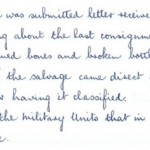 was submitted letter receive
g about the last consignm
ued bones and broken bott
the salvage came direct
having it classified.
the military Units that in